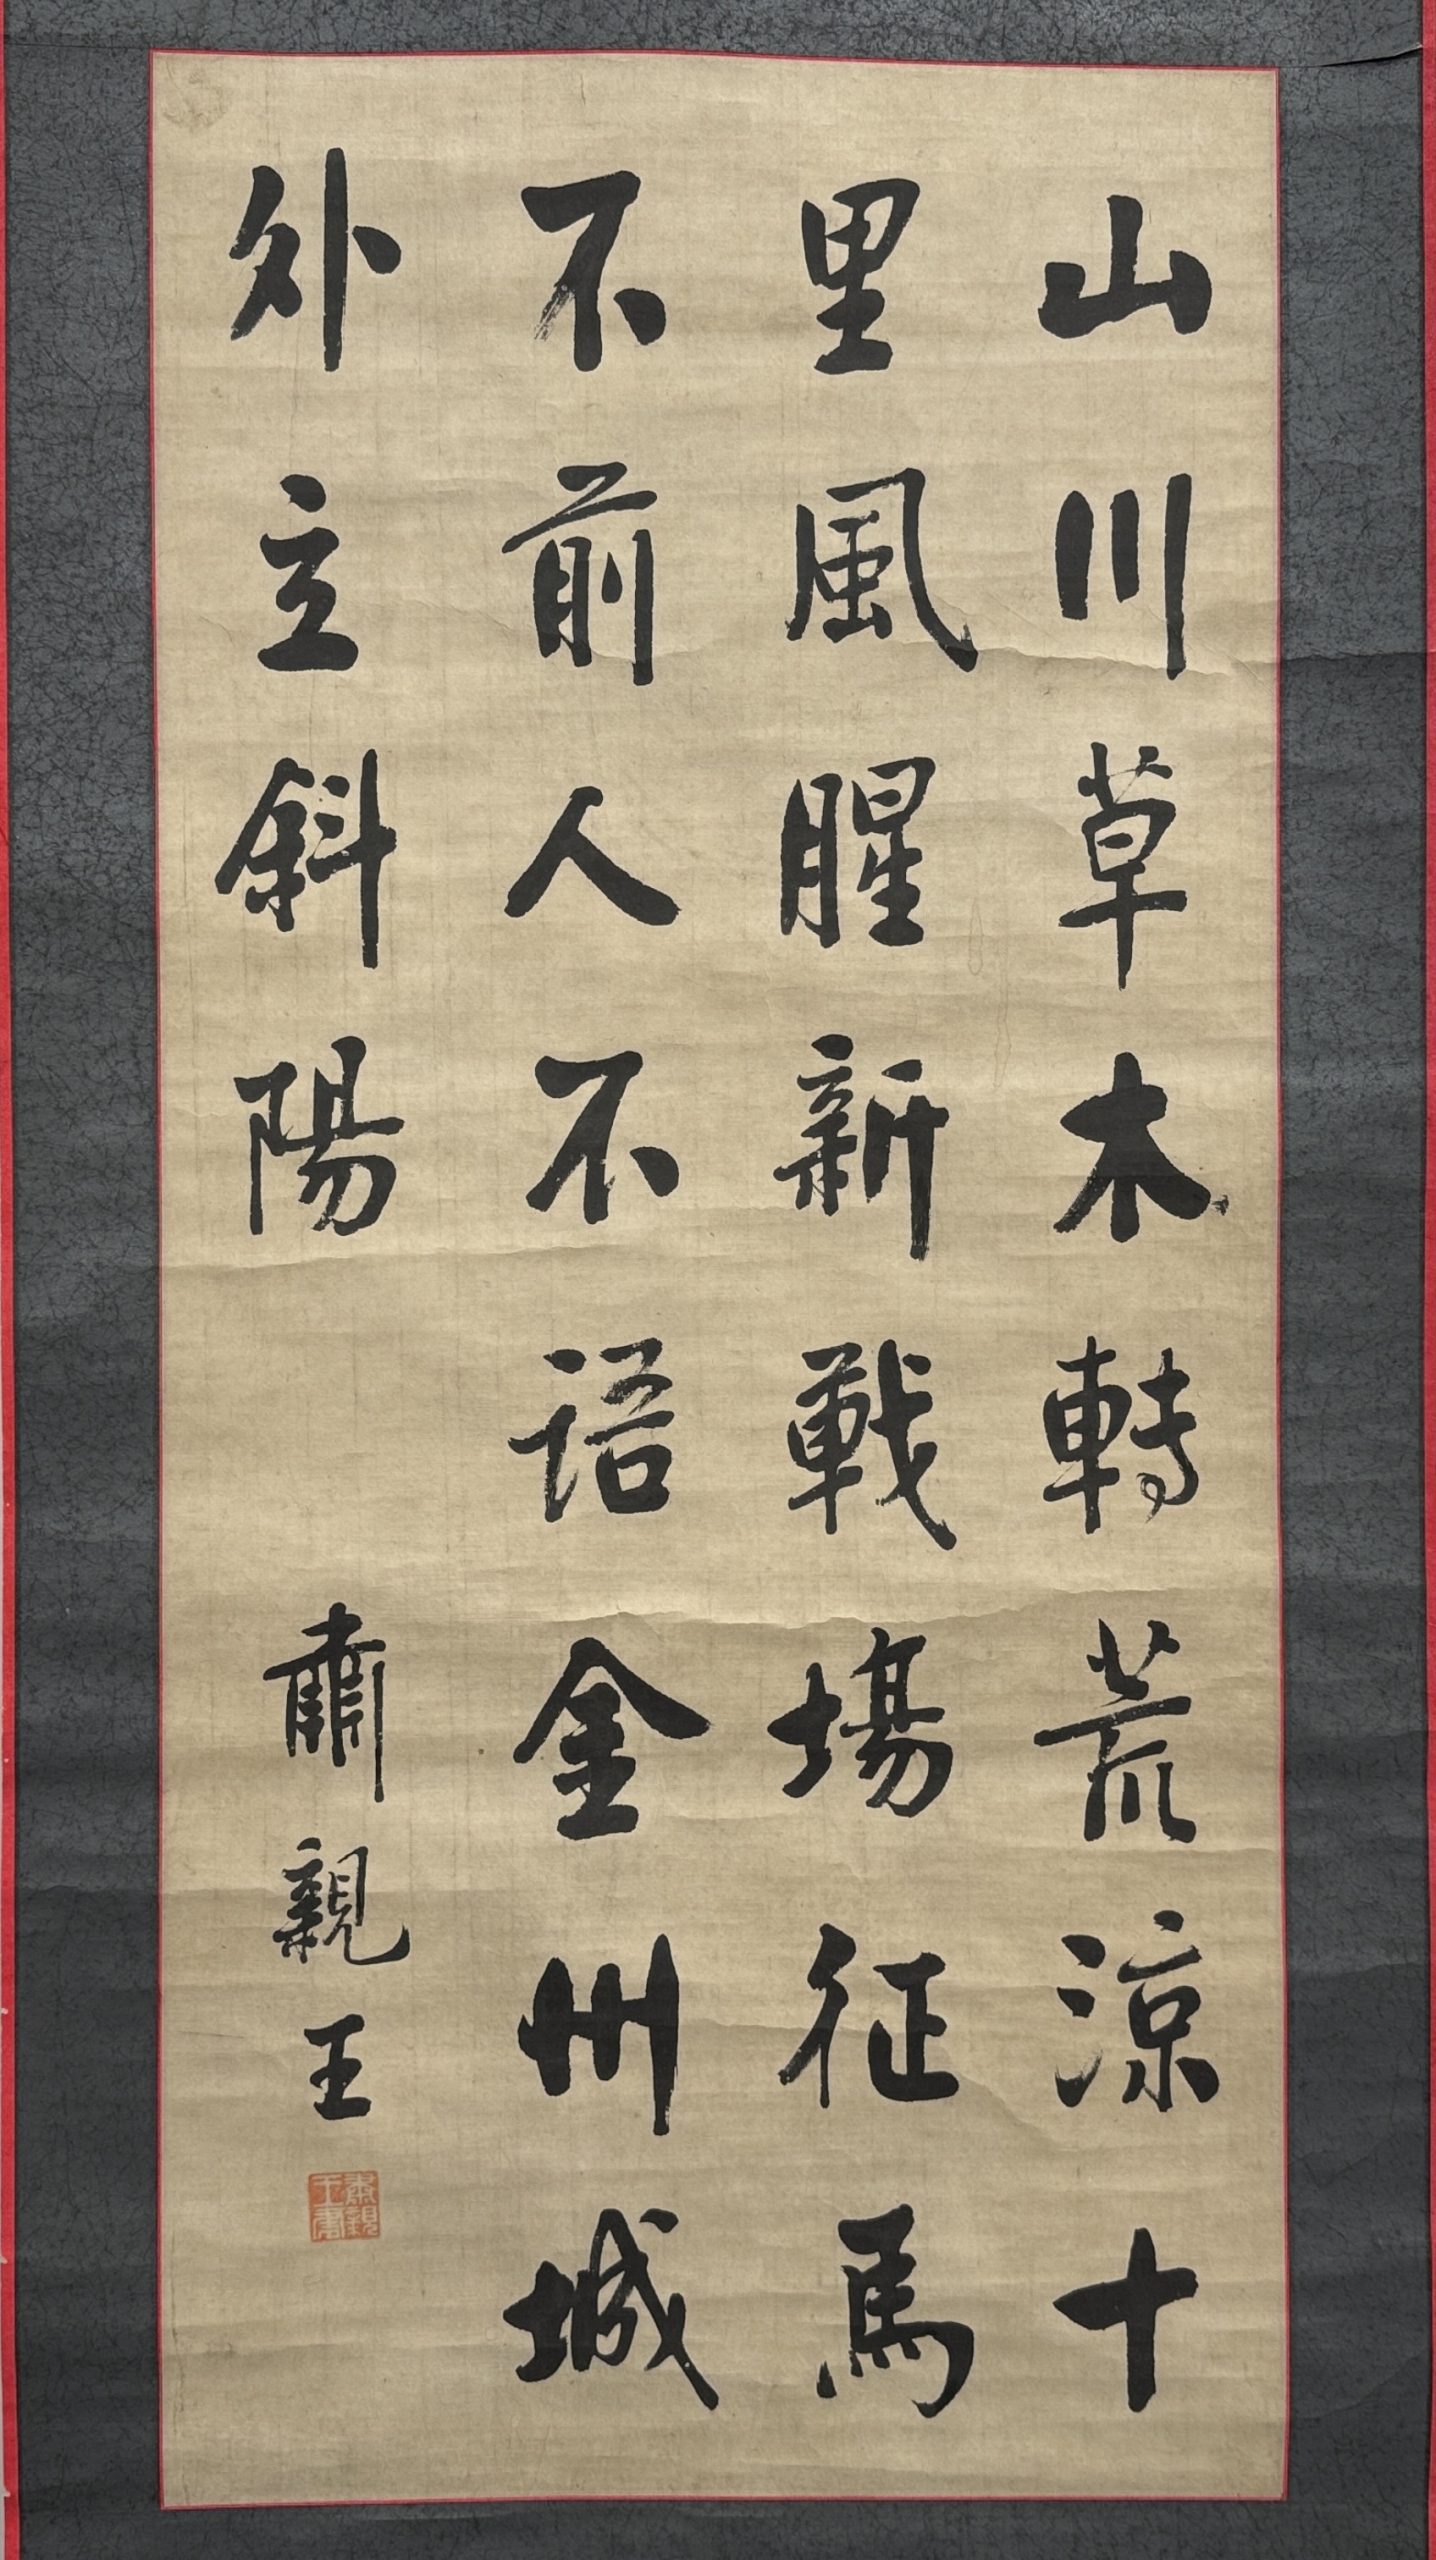 山川草木轉荒涼十
里風腥新戰場征馬
不前人不語金州城
外立斜陽
肅親王
肅親王章